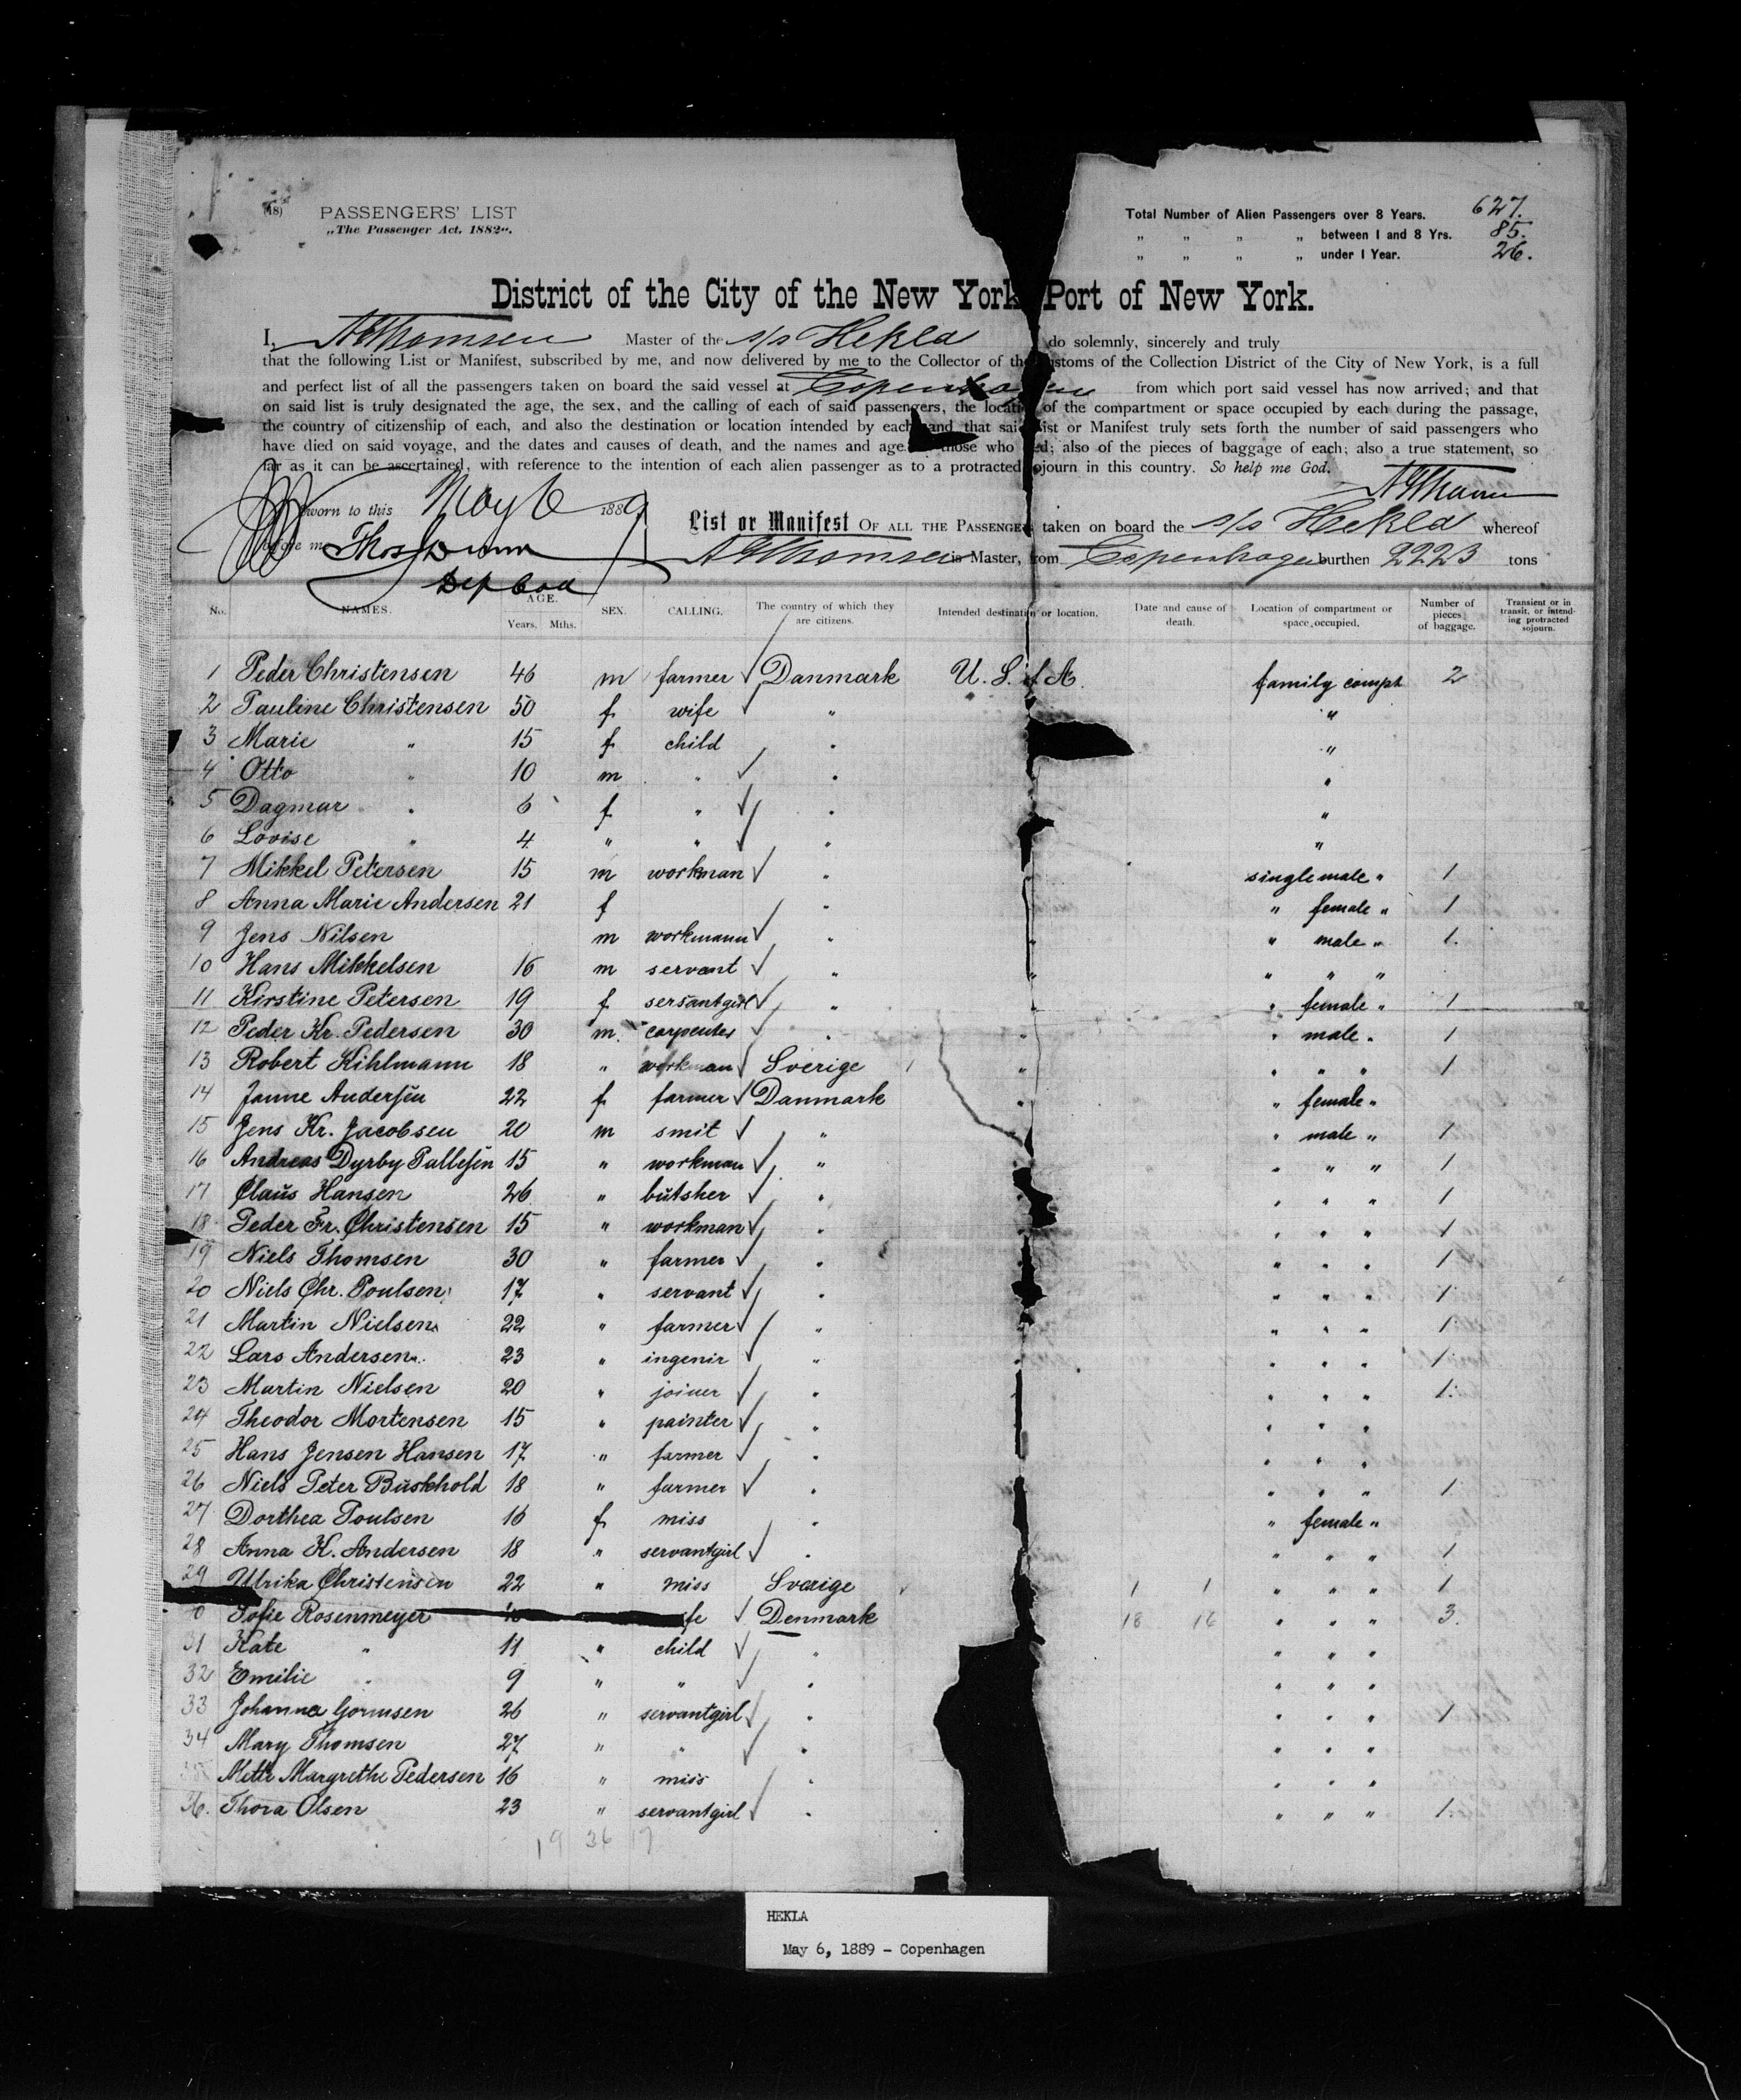 (48) PASSENGERS' LIST
„The Passenger Act. 1882“.
Total Number of Alien Passengers over 8 Years. 627.
„ „ „ „ between 1 and 8 Yrs. 85.
„ „ „ „ under 1 Year. 26.
District of the City of the New York Port of New York.
I, Thomsen Master of the s/s Hekla do solemnly, sincerely and truly
that the following List or Manifest, subscribed by me, and now delivered by me to the Collector of the Customs of the Collection District of the City of New York, is a full
and perfect list of all the passengers taken on board the said vessel at Copenhagen from which port said vessel has now arrived; and that
on said list is truly designated the age, the sex, and the calling of each of said passengers, the location of the compartment or space occupied by each during the passage,
the country of citizenship of each, and also the destination or location intended by each and that said List or Manifest truly sets forth the number of said passengers who
have died on said voyage, and the dates and causes of death, and the names and age those who ed; also of the pieces of baggage of each; also a true statement, so
far as it can be ascertained, with reference to the intention of each alien passenger as to a protracted sojourn in this country. So help me God.
Sworn to this May 6 1889
before me Thos Dunn
Dep Coll
List or Manifest OF ALL THE PASSENGERS taken on board the s/s Hekla whereof
Thomsen is Master, from Copenhagen burthen 2223 tons
No. NAMES. AGE. Years. Mths. SEX. CALLING. The country of which they are citizens. Intended destination or location. Date and cause of death. Location of compartment or space occupied. Number of pieces of baggage. Transient or in transit, or intending protracted sojourn.
1 Peder Christensen 46 m farmer Danmark U. S. of A. family compt 2
2 Pauline Christensen 50 f wife " "
3 Marie " 15 f child " "
4 Otto " 10 m " " "
5 Dagmar " 6 f " " "
6 Lovise " 4 " " " "
7 Mikkel Petersen 15 m workman " " single male " 1
8 Anna Marie Andersen 21 f " " female " 1
9 Jens Nilsen m workmann " " " male " 1.
10 Hans Mikkelsen 16 m servant " " " " "
11 Kirstine Petersen 19 f servantgirl " " " female " 1
12 Peder Kr. Pedersen 30 m. carpenter " " " male " 1
13 Robert Kihlmann 18 " workman Sverige " " " " 1
14 Janne Andersen 22 f farmer Danmark " " female "
15 Jens Kr. Jacobsen 20 m smit " " " male " 1
16 Andreas Dyrby Pallesen 15 " workman " " " " 1
17 Claus Hansen 26 " butsher " " " " 1
18 Peder Fr. Christensen 15 " workman " " " " 1
19 Niels Thomsen 30 " farmer " " " " 1
20 Niels Chr. Poulsen 17 " servant " " " " 1
21 Martin Nielsen 22 " farmer " " " " 1
22 Lars Andersen 23 " ingenir " " " " 1
23 Martin Nielsen 20 " joiner " " " " 1
24 Theodor Mortensen 15 " painter " " " "
25 Hans Jensen Hansen 17 " farmer " " " "
26 Niels Peter Buskhold 18 " farmer " " " " 1
27 Dorthea Poulsen 16 f miss " " female "
28 Anna K. Andersen 18 " servantgirl " " " " 1
29 Ulrika Christensen 22 " miss Sverige 1 1 " " " 1
0 Sofie Rosenmeyer fe Denmark 18 16 " " " 3.
31 Kate " 11 " child " " " "
32 Emilie " 9 " " " " " "
33 Johanna Gormsen 26 " servantgirl " " " " 1
34 Mary Thomsen 27 " " " " " "
35 Mette Margrethe Pedersen 16 " miss " " " "
36. Thora Olsen 23 " servantgirl " " " " 1.
19 36 17
HEKLA
May 6, 1889 - Copenhagen